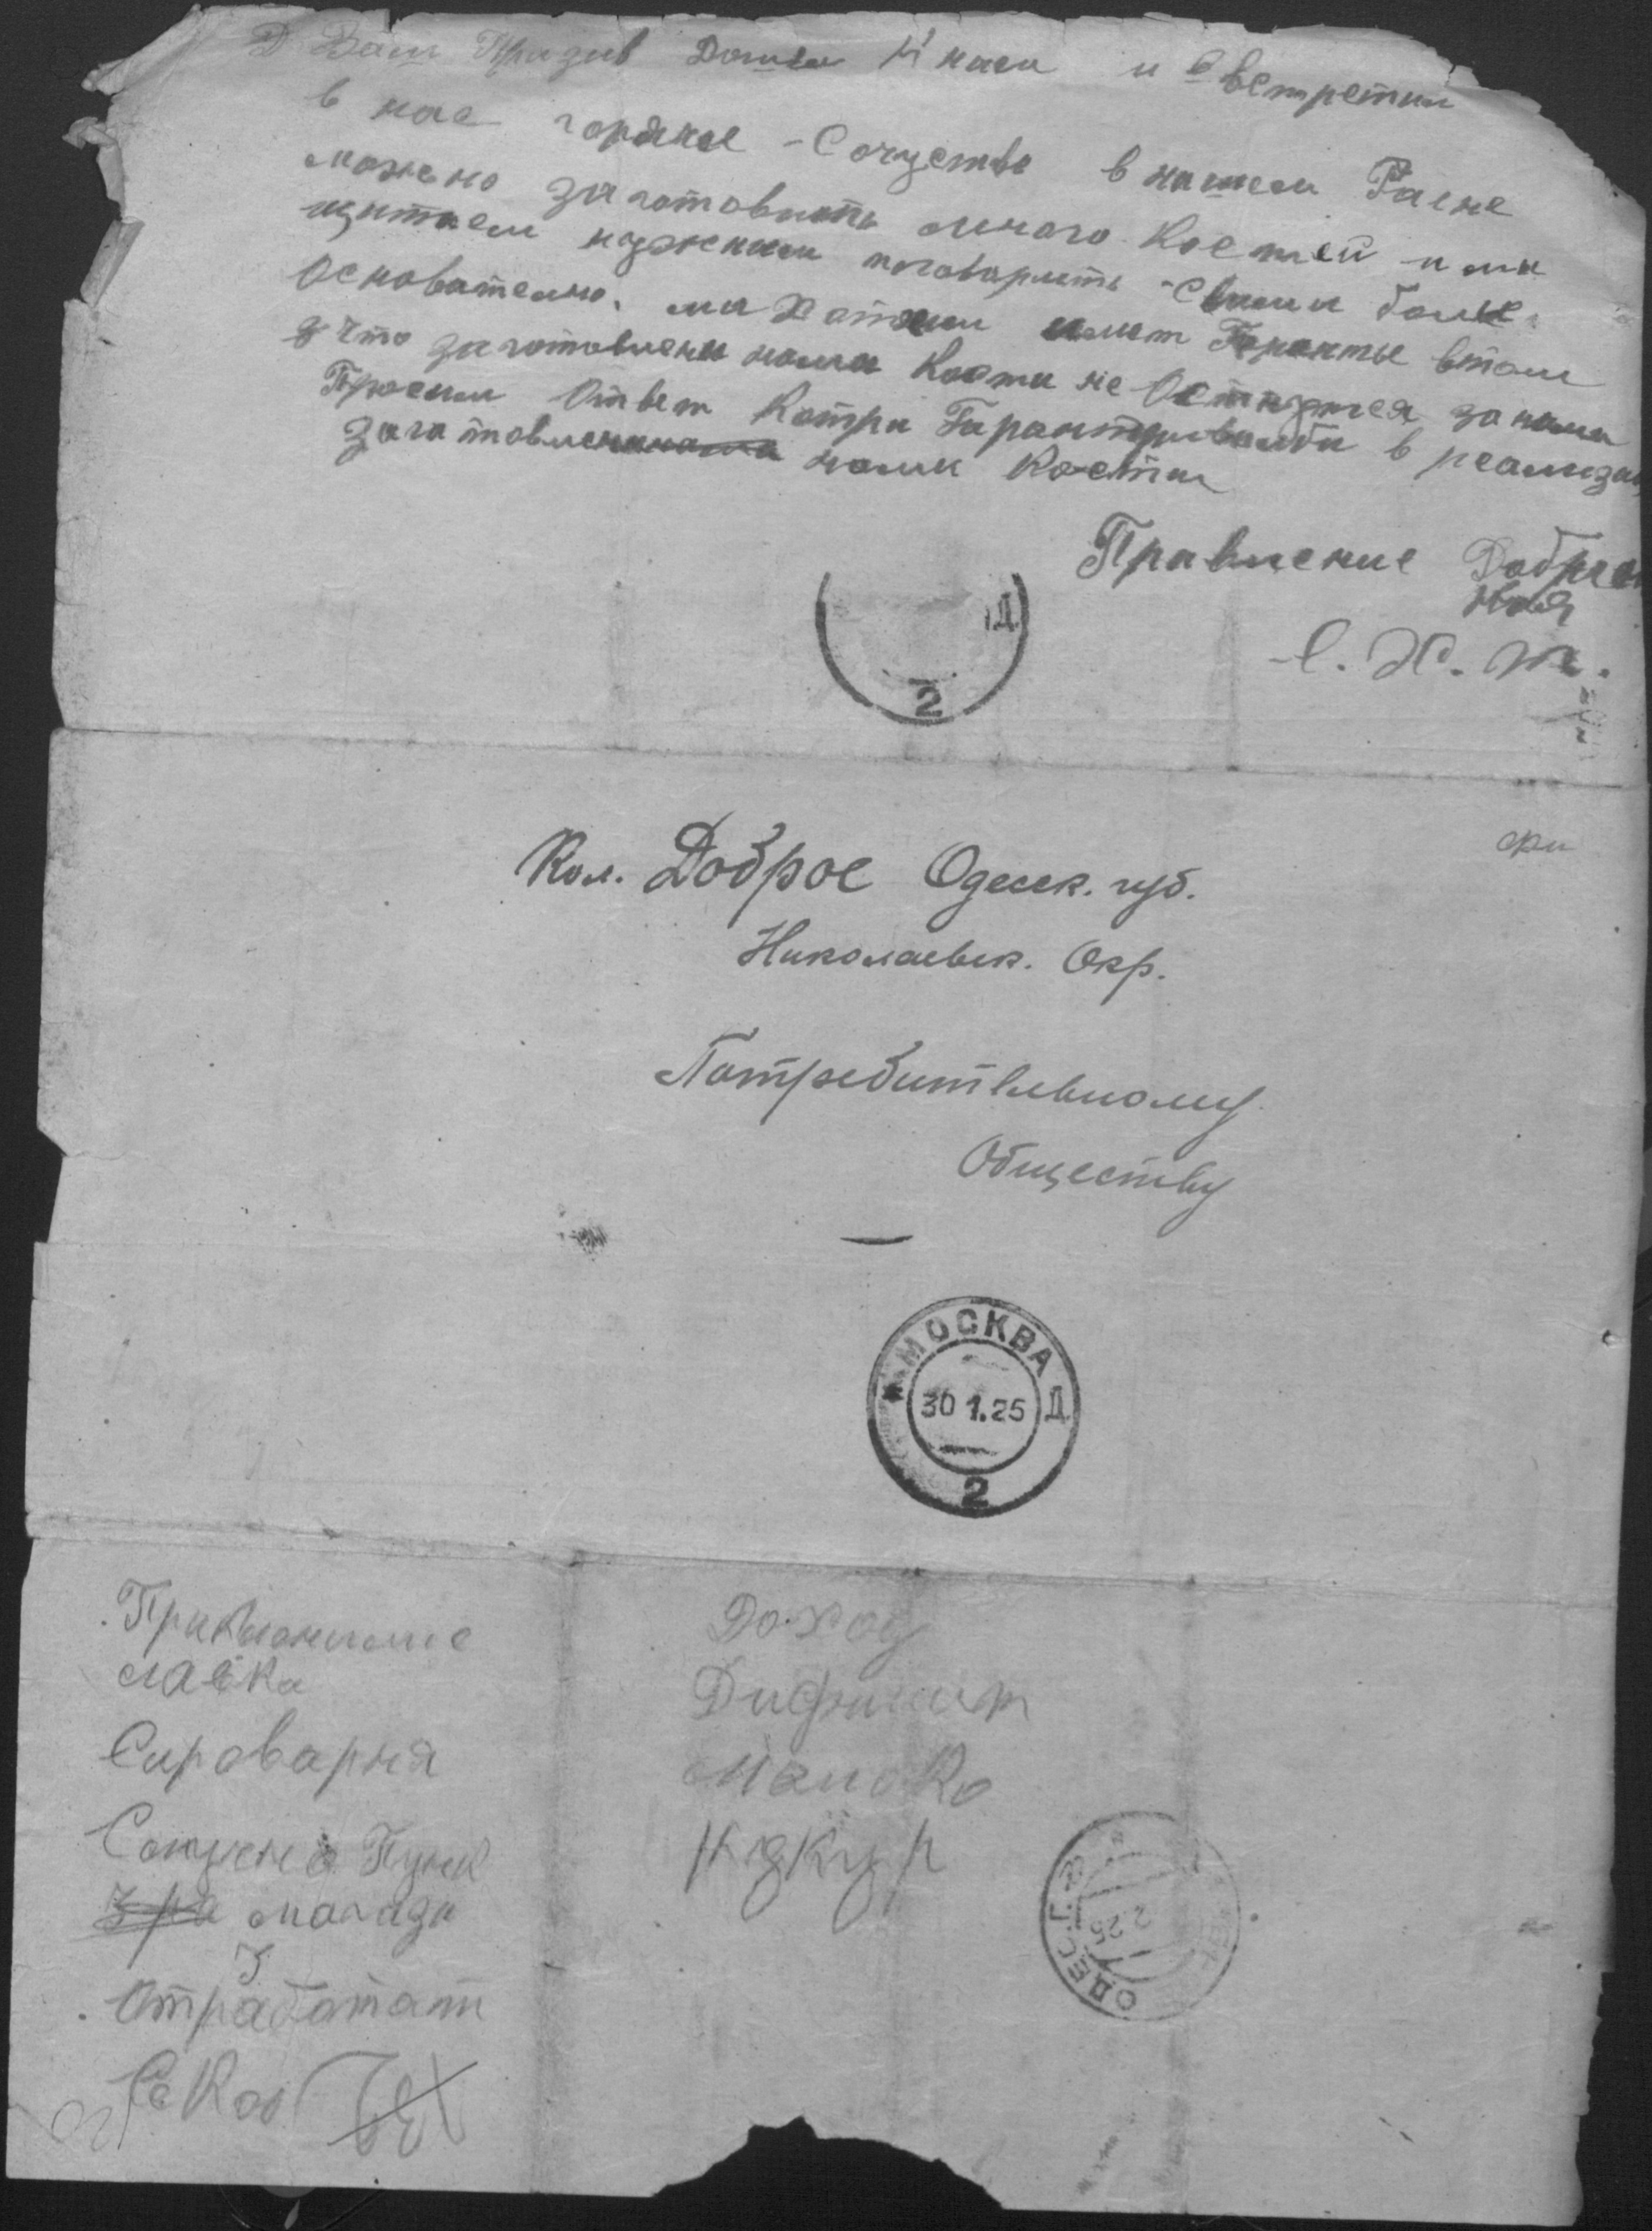 Ваш Призив Дошли К нам и Светретил
в нас горячое Сочуство в нашем Раене
можено заготовить много Костей и ми
щитаем нужним поговарить Свами более
Основателно. ми Хотели имет Гаранты втом
что заготовлени нами Кости не Останутся за нами
Просим Ответ Котри Гарантировалби в реализац
заготовлен нами Кости
Правление Добрен
С. Х. Т.
Д
2
Кол. Доброе Одесск. губ.
Николаевск. Окр.
Потребительному
Обществу
МОСКВА Д
30 1.25
2
лавка
Сироварня
Пунк
Отработат
Доход
Дифицит
Молоко
ОДЕС.Г.
2.25